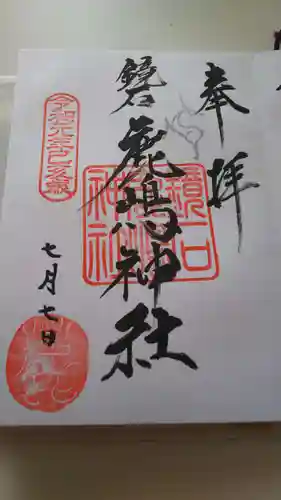 奉拝
鏡石
鹿嶋神社
鏡石
鹿嶋
神社
令和元年己亥歳
七月七日